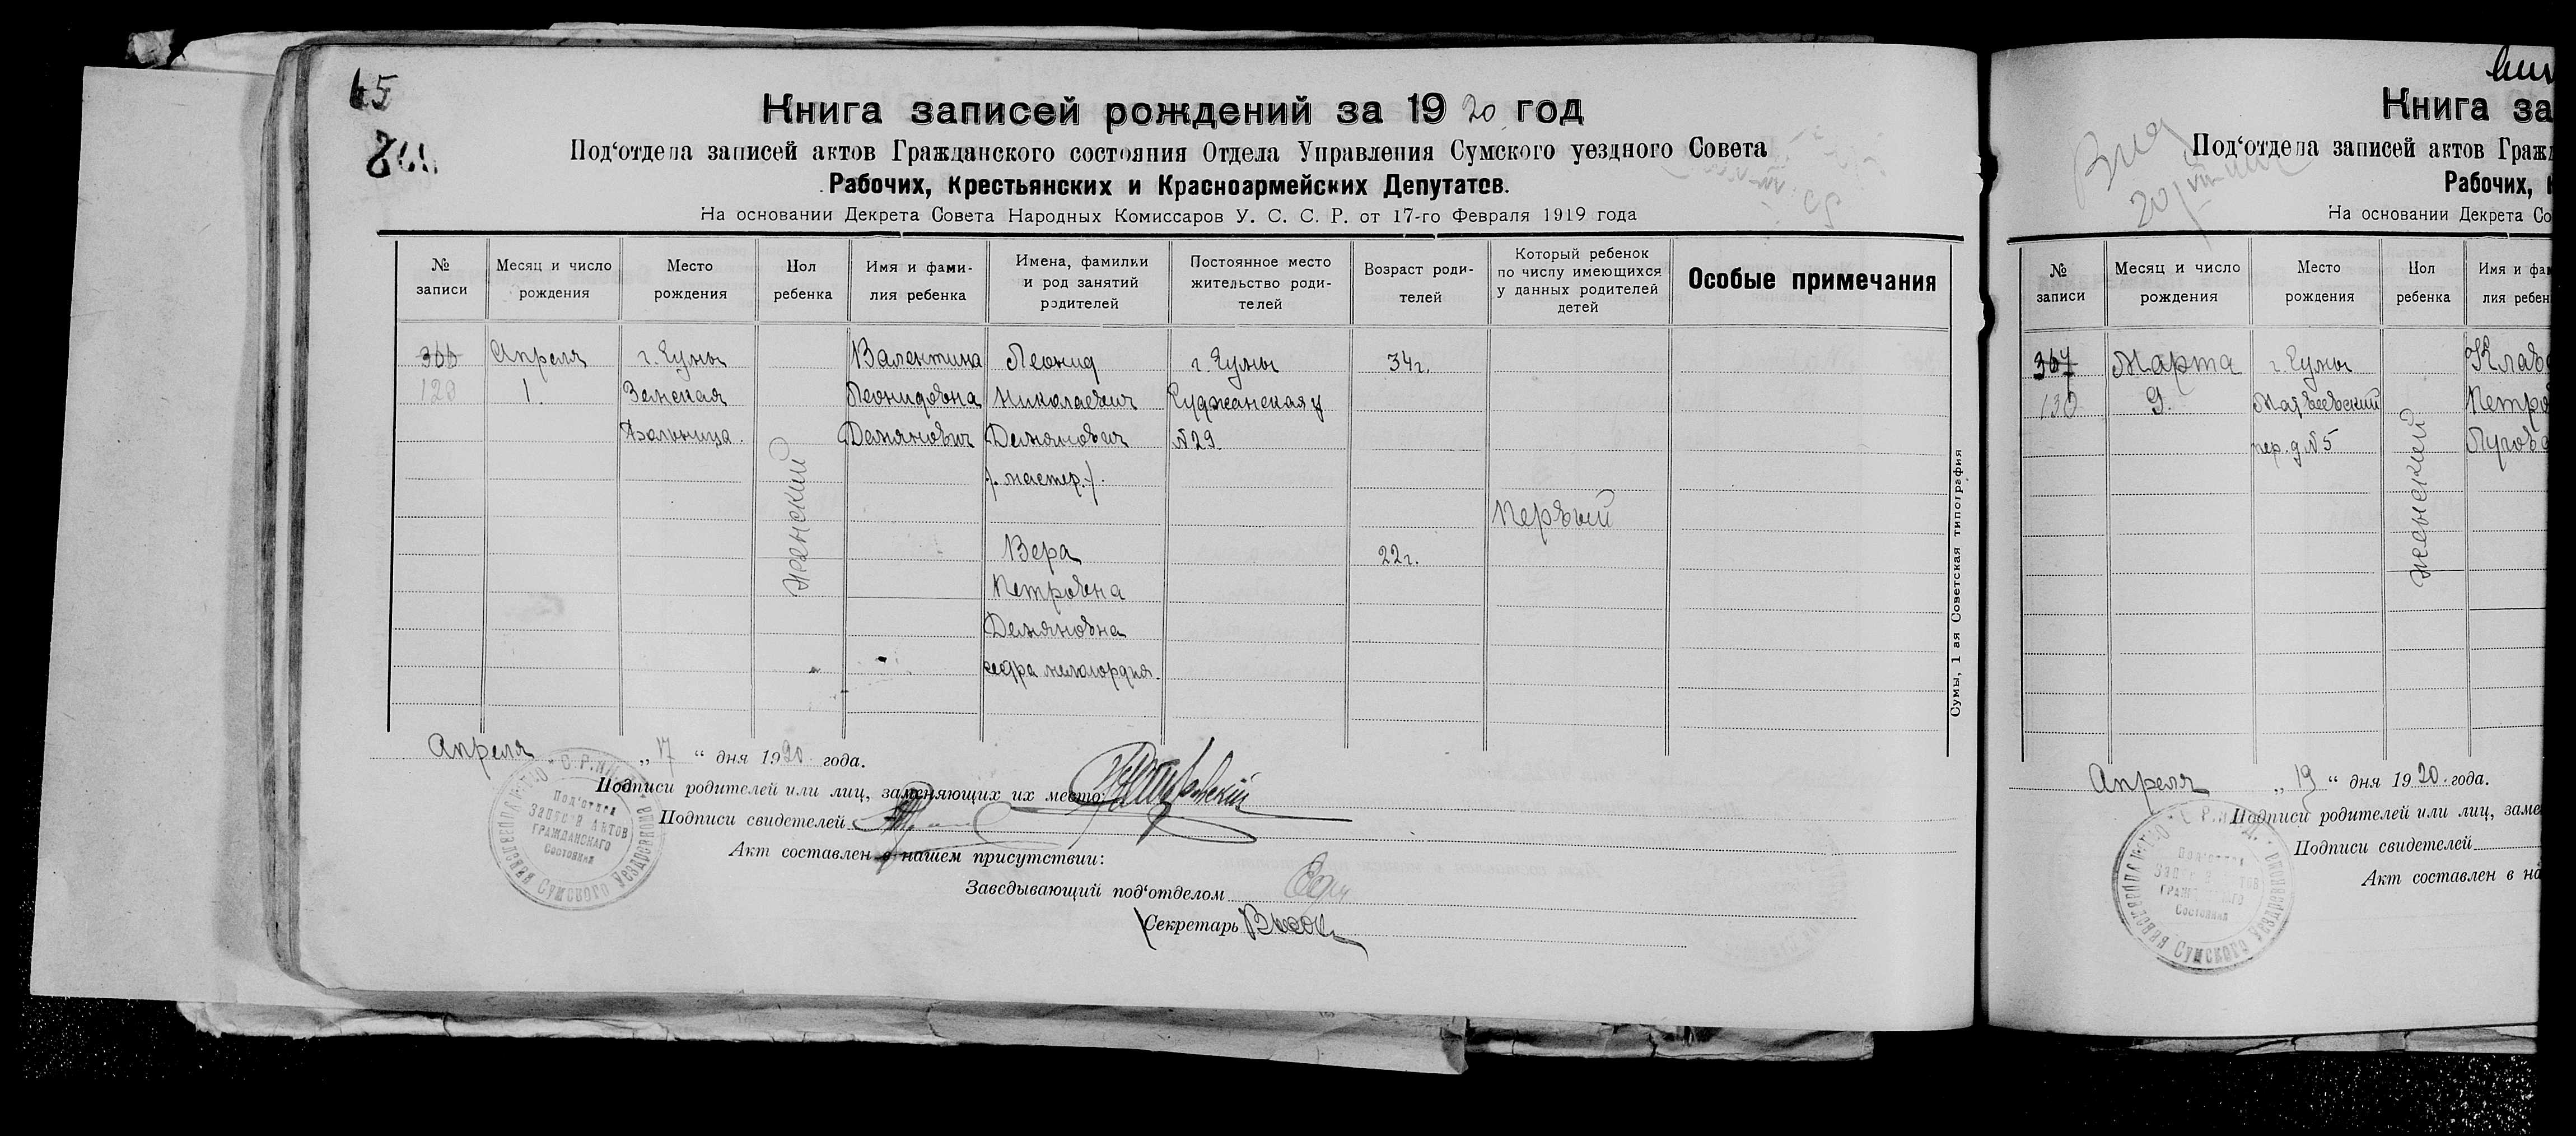 65
Книга записей рождений за 1920 год
Под‘отдела записей актов Гражданского состояния Отдела Управления Сумского уездного Совета
Рабочих, Крестьянских и Красноармейских Депутатов.
На основании Декрета Совета Народных Комиссаров У. С. С. Р. от 17-го Февраля 1919 года
№ записи
Месяц и число рождения
Место рождения
Пол ребенка
Имя и фамилия ребенка
Имена, фамилки и род занятий родителей
Постоянное место жительство родителей
Возраст родителей
Который ребенок по числу имеющихся у данных родителей детей
Особые примечания
366 Апреля г. Сумы Валентина Леонид г. Сумы 34г.
129 1. Земская Леонидовна Николаевич Суджанская у
Больница. Демянович Демянович №29.
женский
(мастер.).
Первый
Вера 22г.
Петровна
Демяновна
сестра милосердия.
Сумы, 1 ая Советская типография
Апреля „17“ дня 1920 года.
Подписи родителей или лиц, заменяющих их место:
Подписи свидетелей
Акт составлен в нашем присутствии:
Заведывающий под‘отделом
Секретарь
Под‘отдел
Записи Актов
Гражданского
Состояния
Сумского
Книга за
Под‘отдела записей актов Гражд
Рабочих,
На основании Декрета Со
№ записи
Месяц и число рождения
Место рождения
Пол ребенка
Имя и фам
лия ребен
367 Марта г. Сумы Клав
130 9. Матвеевский Петро
пер. д. №5 Лугов
женский
Апреля „19“ дня 1920 года.
Подписи родителей или лиц, заме
Подписи свидетелей
Акт составлен в на
Под‘отдел
Записи Актов
Гражданского
Состояния
Сумского